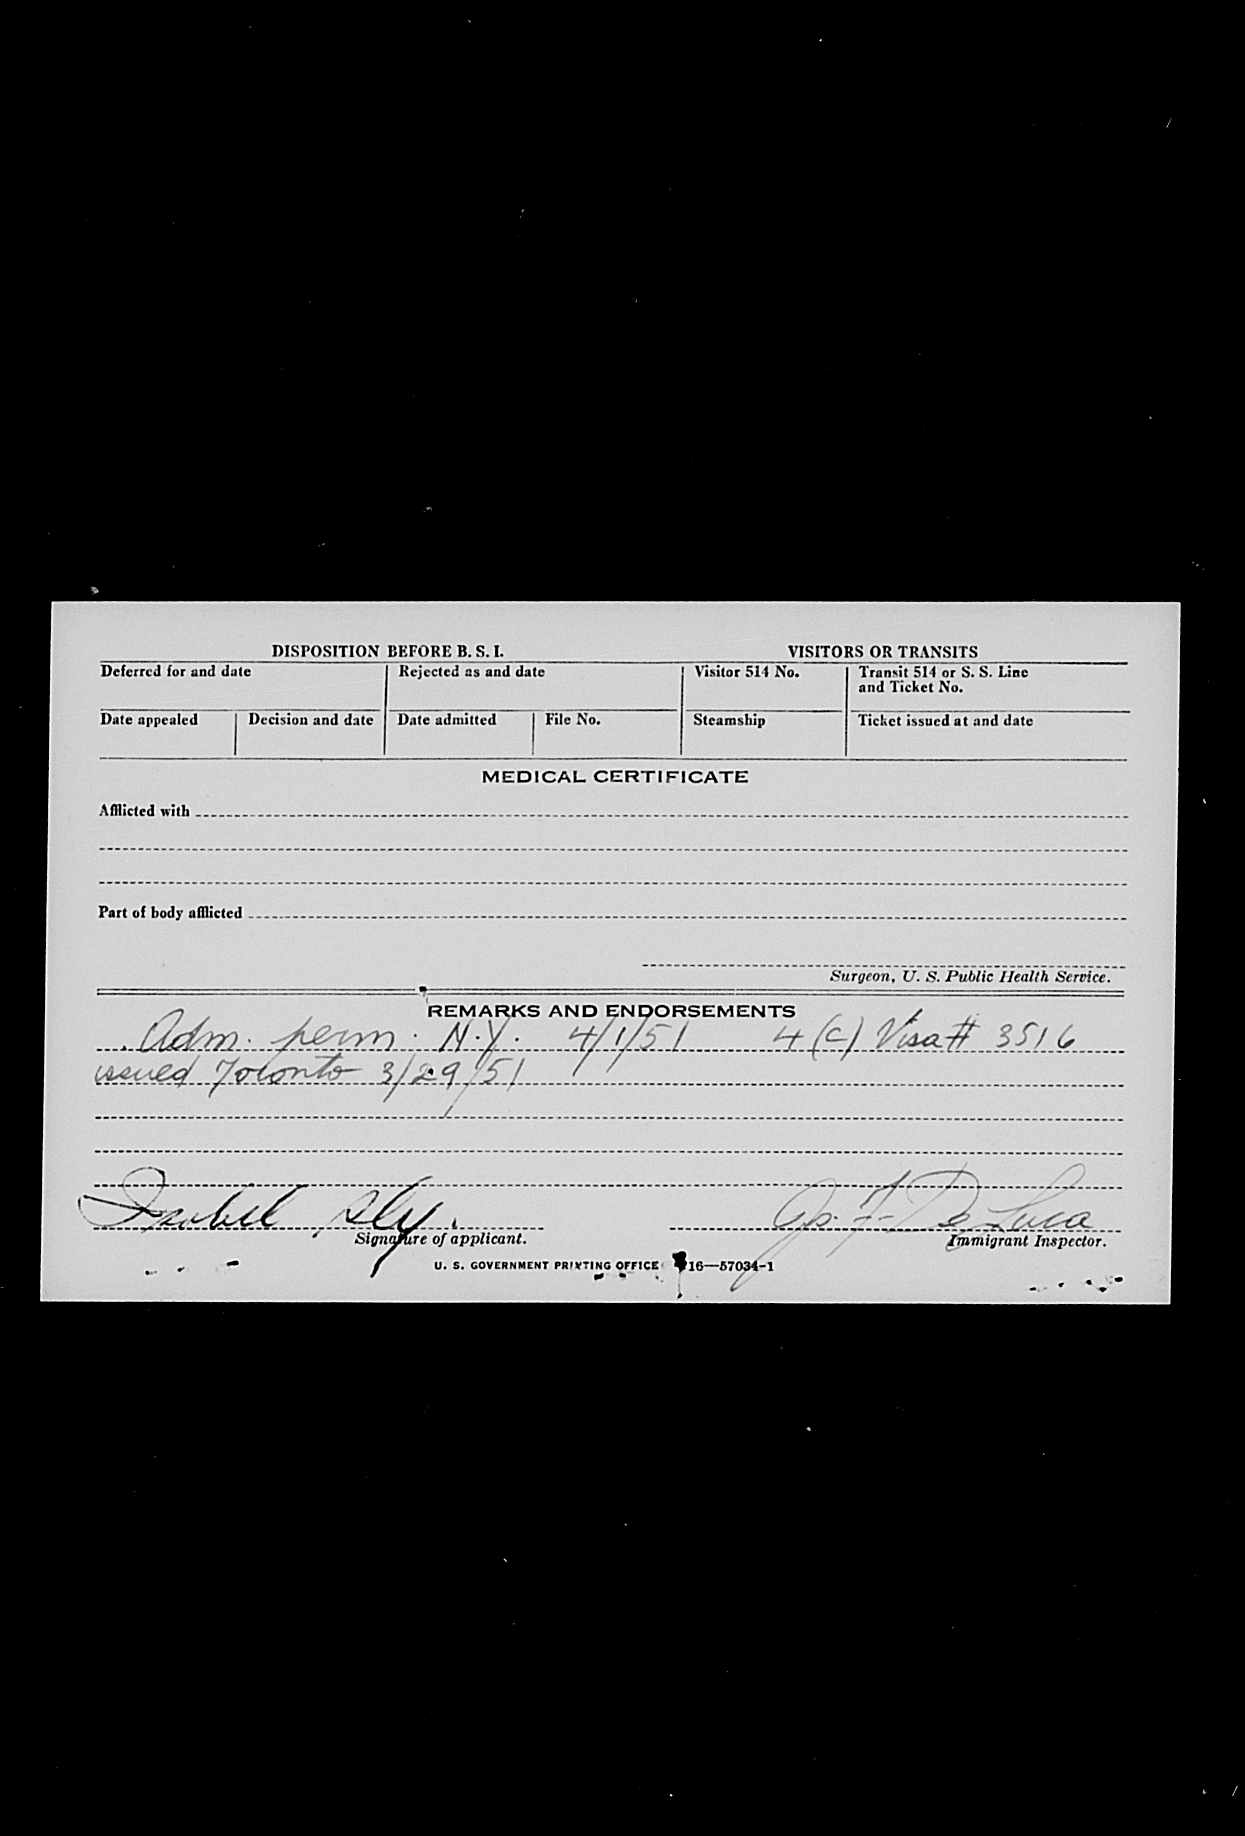 DISPOSITION BEFORE B. S. I. VISITORS OR TRANSITS
Deferred for and date Rejected as and date Visitor 514 No. Transit 514 or S. S. Line
and Ticket No.
Date appealed Decision and date Date admitted File No. Steamship Ticket issued at and date
MEDICAL CERTIFICATE
Afflicted with
Part of body afflicted
Surgeon, U. S. Public Health Service.
REMARKS AND ENDORSEMENTS
Adm. perm. N.Y. 4/1/51 4(c) Visa # 3516
issued Toronto 3/29/51
Isabel Sly. F. De Luca
Signature of applicant. Immigrant Inspector.
U. S. GOVERNMENT PRINTING OFFICE 16—57034-1